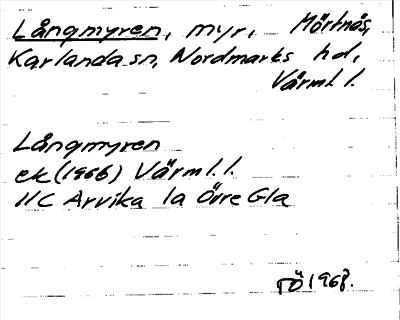 Långmyren, myr, Mörtnäs,
Karlanda sn, Nordmarks hd,
Värml. l.
Långmyren
ek (1966) Värml. l.
11C Arvika 1a Övre Gla
RÖ 1968.